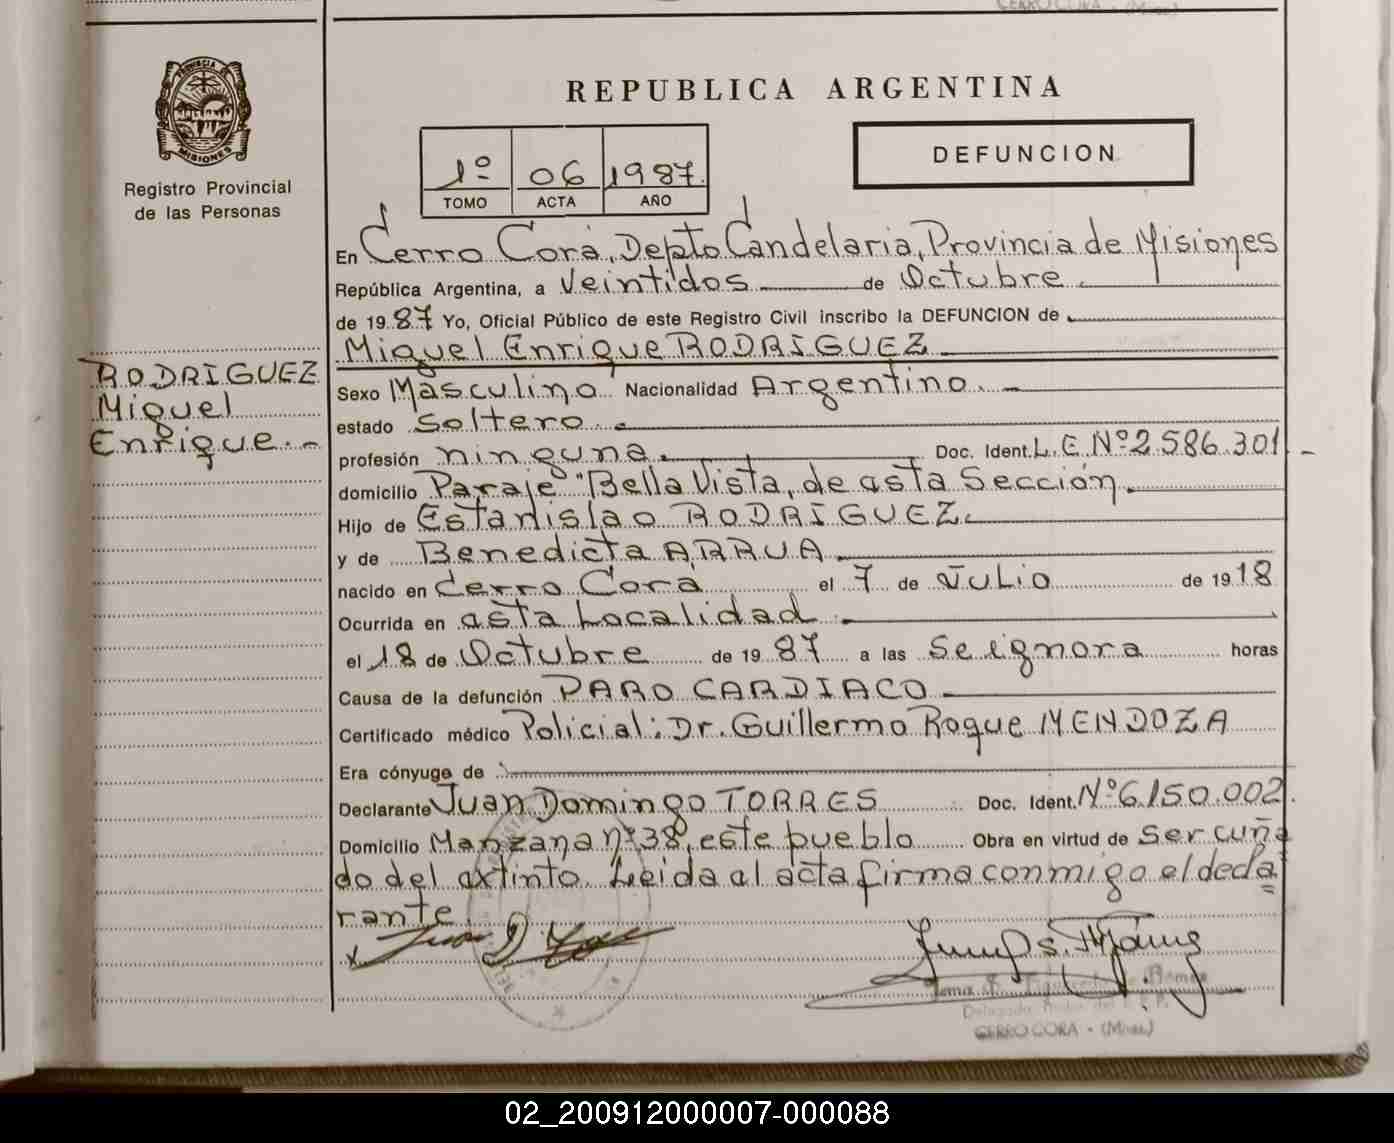 PROVINCIA DE
MISIONES
Registro Provincial
de las Personas
REPUBLICA ARGENTINA
1º 06 1987.
TOMO ACTA AÑO
DEFUNCION
En Cerro Corá, Depto Candelaria, Provincia de Misiones
República Argentina, a Veintidos de Octubre
de 1987 Yo, Oficial Público de este Registro Civil inscribo la DEFUNCION de
Miguel Enrique RODRIGUEZ
RODRIGUEZ
Miguel
Enrique.-
Sexo Masculino Nacionalidad Argentino.
estado Soltero.
profesión ninguna. Doc. Ident. L.E.Nº2.586.301.-
domicilio Paraje "Bella Vista, de esta Sección.
Hijo de Estanislao RODRIGUEZ.
y de Benedicta ARRUA
nacido en Cerro Cora el 7 de Julio de 1918
Ocurrida en esta Localidad.
el 18 de Octubre de 1987 a las Se ignora horas
Causa de la defunción PARO CARDIACO
Certificado médico Policial: Dr. Guillermo Roque MENDOZA
Era cónyuge de
Declarante Juan Domingo TORRES Doc. Ident. Nº6.150.002.
Domicilio Manzana nº38, este pueblo Obra en virtud de ser cuña
do del extinto. Leida al acta firma conmigo el decla
rante.
CERRO CORA - (Mnes)
02_200912000007-000088